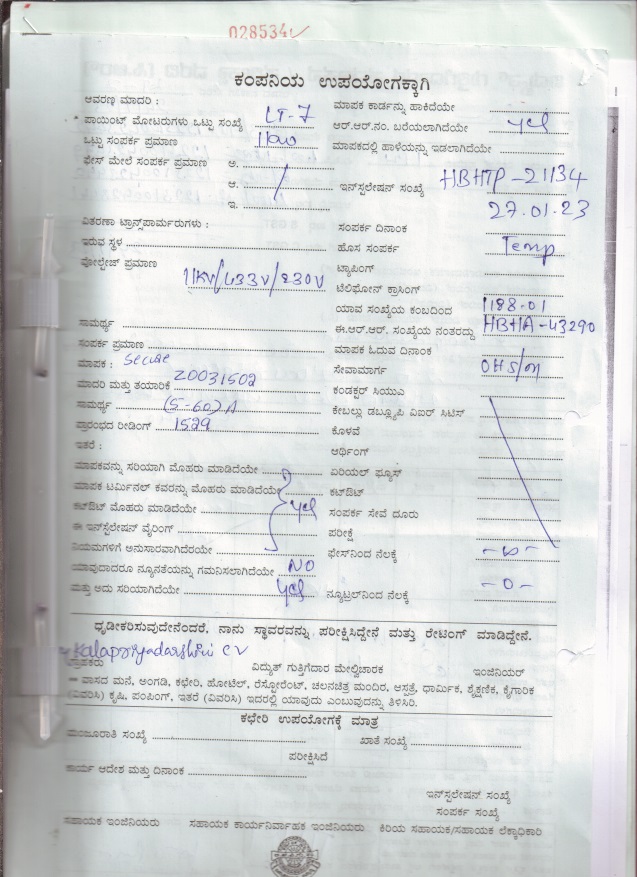 028534
ಕಂಪನಿಯ ಉಪಯೋಗಕ್ಕಾಗಿ
ಆವರಣ ಮಾದರಿ :
ಪಾಯಿಂಟ್ ಮೋಟರುಗಳು ಒಟ್ಟು ಸಂಖ್ಯೆ LT-7
ಒಟ್ಟು ಸಂಪರ್ಕ ಪ್ರಮಾಣ 11kw
ಫೇಸ್ ಮೇಲೆ ಸಂಪರ್ಕ ಪ್ರಮಾಣ ಅ.
ಆ.
ಇ.
ವಿತರಣಾ ಟ್ರಾನ್ಸ್‌ಪಾರ್ಮರುಗಳು :
ಇರುವ ಸ್ಥಳ
ವೋಲ್ಟೇಜ್ ಪ್ರಮಾಣ 11KV/433V/230V
ಸಾಮರ್ಥ್ಯ
ಸಂಪರ್ಕ ಪ್ರಮಾಣ
ಮಾಪಕ : Secure
ಮಾದರಿ ಮತ್ತು ತಯಾರಿಕೆ 20031502
ಸಾಮರ್ಥ್ಯ (5-60) A
ಪ್ರಾರಂಭದ ರೀಡಿಂಗ್ 1529
ಇತರೆ :
ಮಾಪಕವನ್ನು ಸರಿಯಾಗಿ ಮೊಹರು ಮಾಡಿದೆಯೇ
ಮಾಪಕ ಟರ್ಮಿನಲ್ ಕವರನ್ನು ಮೊಹರು ಮಾಡಿದೆಯೇ
ಕಟ್‌ಔಟ್ ಮೊಹರು ಮಾಡಿದೆಯೇ yes
ಈ ಇನ್‌ಸ್ಟಲೇಷನ್ ವೈರಿಂಗ್
ನಿಯಮಗಳಿಗೆ ಅನುಸಾರವಾಗಿದೆರಯೇ
ಯಾವುದಾದರೂ ನ್ಯೂನತೆಯನ್ನು ಗಮನಿಸಲಾಗಿದೆಯೇ NO
ಮತ್ತು ಅದು ಸರಿಯಾಗಿದೆಯೇ yes
ಮಾಪಕ ಕಾರ್ಡನ್ನು ಹಾಕಿದೆಯೇ
ಆರ್.ಆರ್.ನಂ. ಬರೆಯಲಾಗಿದೆಯೇ yes
ಮಾಪಕದಲ್ಲಿ ಹಾಳೆಯನ್ನು ಇಡಲಾಗಿದೆಯೇ
ಇನ್‌ಸ್ಟಲೇಷನ್ ಸಂಖ್ಯೆ HBHTP-21134
27.01.23
ಸಂಪರ್ಕ ದಿನಾಂಕ
ಹೊಸ ಸಂಪರ್ಕ Temp
ಟ್ಯಾಪಿಂಗ್
ಟೆಲಿಫೋನ್ ಕ್ರಾಸಿಂಗ್
ಯಾವ ಸಂಖ್ಯೆಯ ಕಂಬದಿಂದ 1188.01
ಈ.ಆರ್.ಆರ್. ಸಂಖ್ಯೆಯ ನಂತರದ್ದು HBHA-43290
ಮಾಪಕ ಓದುವ ದಿನಾಂಕ
ಸೇವಾಮಾರ್ಗ
ಕಂಡಕ್ಟರ್ ಸಿಯುಎ
ಕೇಬಲ್ಲು ಡಬ್ಲ್ಯೂಪಿ ವಿಐರ್ ಸಿಟಿಸ್
ಕೊಳವೆ
ಆರ್ಥಿಂಗ್
ಏರಿಯಲ್ ಫ್ಯೂಸ್
ಕಟ್‌ಔಟ್
ಸಂಪರ್ಕ ಸೇವೆ ದೂರು
ಪರೀಕ್ಷೆ
ಫೇಸ್‌ನಿಂದ ನೆಲಕ್ಕೆ
ನ್ಯೂಟ್ರಲ್‌ನಿಂದ ನೆಲಕ್ಕೆ -0-
ಧೃಡೀಕರಿಸುವುದೇನೆಂದರೆ, ನಾನು ಸ್ಥಾವರವನ್ನು ಪರೀಕ್ಷಿಸಿದ್ದೇನೆ ಮತ್ತು ರೇಟಿಂಗ್ ಮಾಡಿದ್ದೇನೆ.
Kalapriyadarshini CV
ಗ್ರಾಹಕರು ವಿದ್ಯುತ್ ಗುತ್ತಿಗೆದಾರ ಮೇಲ್ವಿಚಾರಕ ಇಂಜಿನಿಯರ್
= ವಾಸದ ಮನೆ, ಅಂಗಡಿ, ಕಛೇರಿ, ಹೋಟೆಲ್, ರೆಸ್ಟೋರೆಂಟ್, ಚಲನಚಿತ್ರ ಮಂದಿರ, ಆಸ್ಪತ್ರೆ, ಧಾರ್ಮಿಕ, ಶೈಕ್ಷಣಿಕ, ಕೈಗಾರಿಕ
(ವಿವರಿಸಿ) ಕೃಷಿ, ಪಂಪಿಂಗ್, ಇತರೆ (ವಿವರಿಸಿ) ಇದರಲ್ಲಿ ಯಾವುದು ಎಂಬುವುದನ್ನು ತಿಳಿಸಿರಿ.
ಕಛೇರಿ ಉಪಯೋಗಕ್ಕೆ ಮಾತ್ರ
ಮಂಜೂರಾತಿ ಸಂಖ್ಯೆ ಖಾತೆ ಸಂಖ್ಯೆ
ಪರೀಕ್ಷಿಸಿದೆ
ಕಾರ್ಯ ಆದೇಶ ಮತ್ತು ದಿನಾಂಕ
ಇನ್‌ಸ್ಟಲೇಷನ್ ಸಂಖ್ಯೆ
ಸಂಪರ್ಕ ಸಂಖ್ಯೆ
ಸಹಾಯಕ ಇಂಜಿನಿಯರು ಸಹಾಯಕ ಕಾರ್ಯನಿರ್ವಾಹಕ ಇಂಜಿನಿಯರು ಕಿರಿಯ ಸಹಾಯಕ/ಸಹಾಯಕ ಲೆಕ್ಕಾಧಿಕಾರಿ